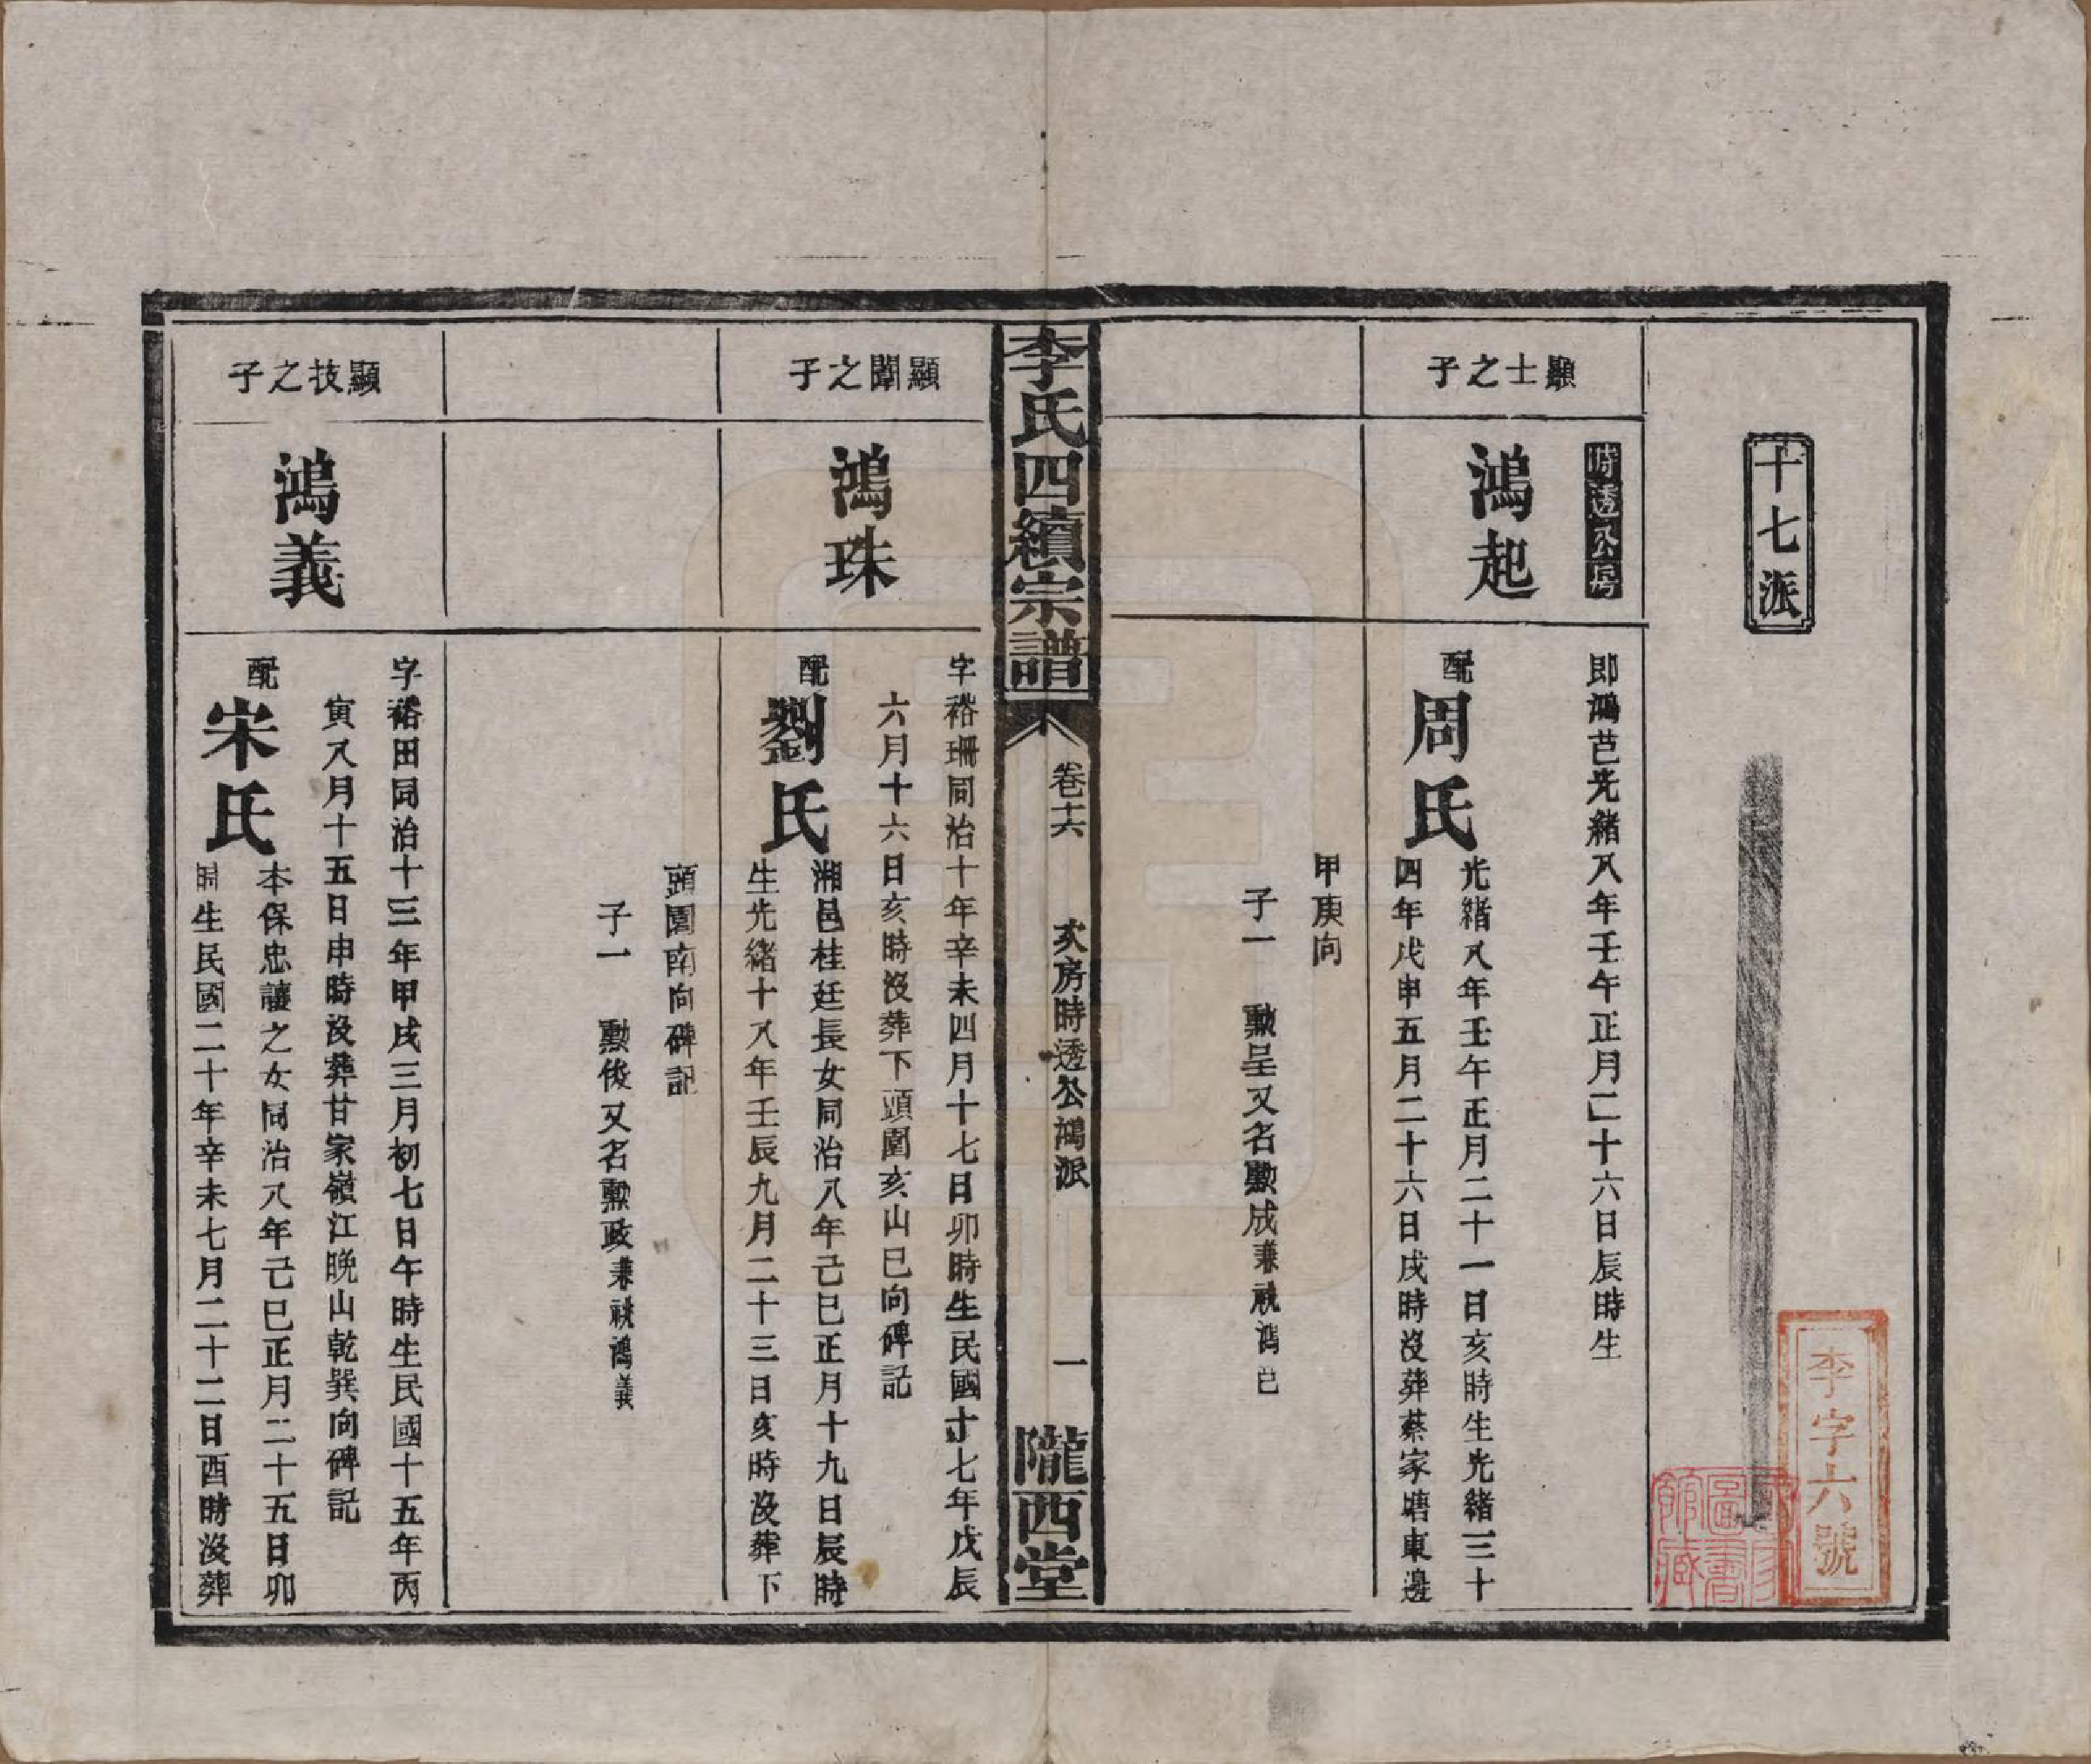 十七派
李字六號
顯士之子
時透公房
鴻起
即鴻芑光緒八年壬午正月二十六日辰時生
配周氏
光緒八年壬午正月二十一日亥時生光緒三十
四年戊申五月二十六日戌時沒葬蔡家塘東邊
甲庚向
子一　勳呈又名勳成兼祧鴻芑
李氏四續宗譜
卷十六
次房時透公鴻派
一
隴西堂
顯闈之子
鴻珠
字裕珊同治十年辛未四月十七日卯時生民國十七年戊辰
六月十六日亥時沒葬下頭園亥山巳向碑記
配劉氏
湘邑桂廷長女同治八年己巳正月十九日辰時
生光緒十八年壬辰九月二十三日亥時沒葬下
頭園南向碑記
子一　勳俊又名勳政兼祧鴻義
顯技之子
鴻義
字裕田同治十三年甲戌三月初七日午時生民國十五年丙
寅八月十五日申時沒葬甘家嶺江晚山乾巽向碑記
配宋氏
本保忠讓之女同治八年己巳正月二十五日卯
時生民國二十年辛未七月二十二日酉時沒葬